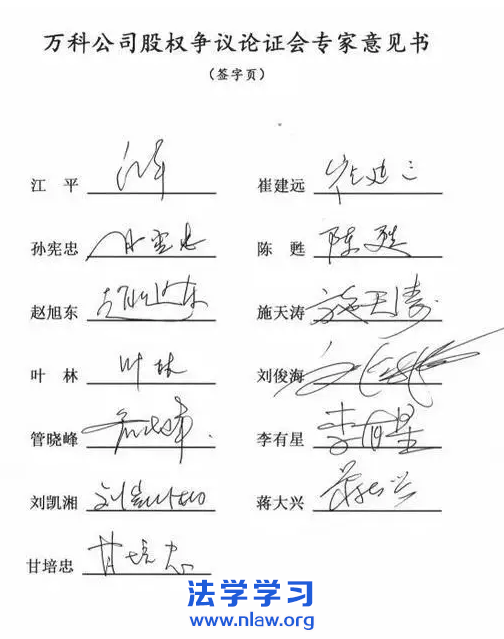 万科公司股权争议论证会专家意见书
（签字页）
江 平 江平 崔建远 崔建远
孙宪忠 孙宪忠 陈 甦 陈甦
赵旭东 赵旭东 施天涛 施天涛
叶 林 叶林 刘俊海 刘俊海
管晓峰 管晓峰 李有星 李有星
刘凯湘 刘凯湘 蒋大兴 蒋大兴
甘培忠 甘培忠
法学学习
www.nlaw.org